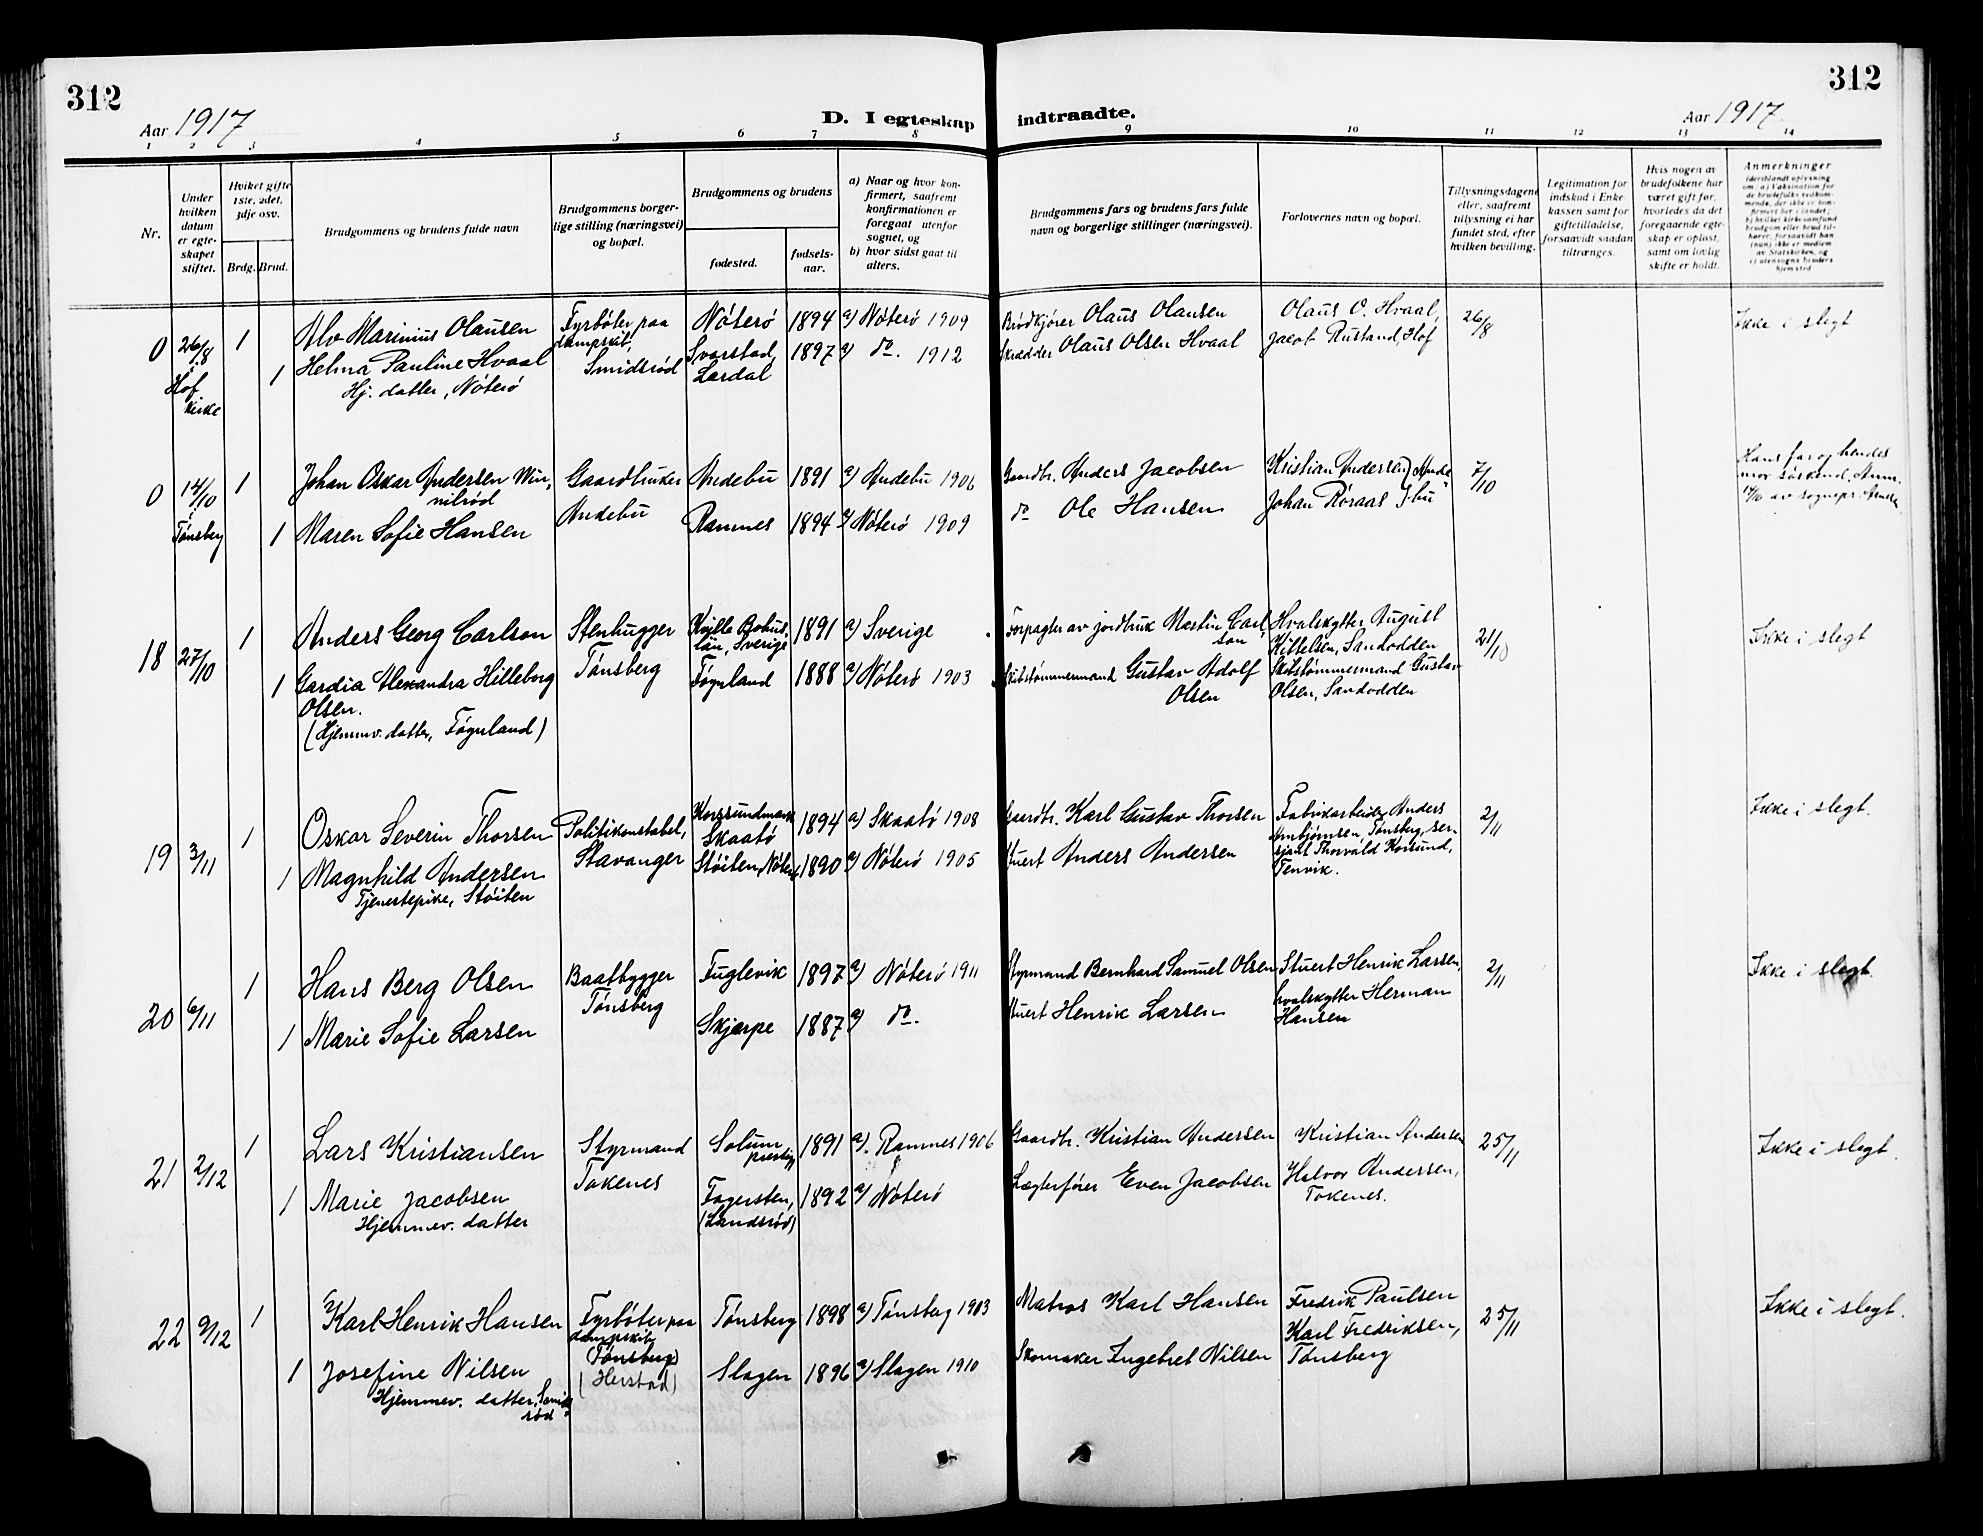 312
312
Aar 1917
D. I egteskap indtraadte.
Aar 1917.
1 2 3 4 5 6 7 8 9 10 11 12 13 14
Nr.
Under hvilken datum er egteskapet stiftet.
Hviket gifte 1ste, 2det, 3dje osv.
Brdg. Brud.
Brudgommens og brudens fulde navn
Brudgommens borgerlige stilling (næringsvei) og bopæl.
Brudgommens og brudens
fødested.
fødselsaar.
a) Naar og hvor konfirmert, saafremt konfirmationen er foregaat utenfor sognet, og
b) hvor sidst gaat til alters.
Brudgommens fars og brudens fars fulde navn og borgerlige stillinger (næringsvei).
Forlovernes navn og bopæl.
Tillysningsdagene eller, saafremt tillysning ei har fundet sted, efter hvilken bevilling.
Legitimation for indskud i Enkekassen samt for giftetilladelse, forsaavidt saadan tiltrænges.
Hvis nogen av brudefolkene har været gift før, hvorledes da det foregaaende egteskap er opløst, samt om lovlig skifte er holdt.
Anmerkninger
(deriblandt oplysning om a) Vaksination for de brudefolks vedkommende, der ikke er konfirmert her i landet; b) hvilket kirkesamfund brudgom eller brud tilhører, forsaavidt han (hun) ikke er medlem av Statskirken, og c) utensogns bruders hjemsted
0 26/8 Hof kirke
1 Alv Marinius Olausen
Fyrbøter paa dampskib, Smidsrød
Nøterø 1894 a) Nøterø 1909
Brødkjører Olaus Olausen
Olaus O. Hvaal,
26/8
Ikke i slegt
1 Helma Pauline Hvaal
Hj. datter, Nøterø
Svarstad, Lardal 1897 a) do. 1912
Skrædder Olaus Olsen Hvaal
Jacob Rustand, Hof
0 14/10 Tønsberg
1 Johan Oskar Andersen
Gaardbruker Andebu
Andebu 1891 a) Andebu 1906
Gaardbr. Anders Jacobsen
Kristian Andersen
Johan Røraas } Andebu
7/10
Hans far og hendes mor søskend.
1 Maren Sofie Hansen
Ramnes 1894 a) Nøterø 1909
do Ole Hansen
18 27/10
1 Anders Georg Carlson
Stenhugger Tønsberg
Kville Bohuslän, Sverige 1891 a) Sverige
Forpagter av jordbruk Martin Carlson
Hvalskytter August Kittelsen, Sandodden
21/10
Ikke i slegt
1 Gardia Alexandra Hilleborg Olsen.
(Hjemmv. datter, Føynland)
Føynland 1888 a) Nøterø 1903
Skibstømmermand Gustav Adolf Olsen
Skibstømmermand Gustav Olsen, Sandodden
19 3/11
1 Oskar Severin Thorsen
Politikonstabel, Stavanger
Korssundmark Skaatø 1894 a) Skaatø 1908
Gaardbr. Karl Gustav Thorsen
Fabrikarbeider Anders Arnbjørnsen, Tønsberg, sersjant Thorvald Korsund, Tenvik.
2/11
Ikke i slegt.
1 Magnhild Andersen
Tjenestepike, Støiten
Støiten, Nøterø 1890 a) Nøterø 1905
Stuert Anders Andersen
20 6/11
1 Hans Berg Olsen
Baatbygger Tønsberg
Fuglevik 1897 a) Nøterø 1911
Styrmand Bernhard Samuel Olsen
Stuert Henrik Larsen, hvalskytter Herman Hansen
2/11
Ikke i slegt.
1 Marie Sofie Larsen
Skjærpe 1887 a) do.
Stuert Henrik Larsen
21 2/12
1 Lars Kristiansen
Styrmand Tokenes
Solum præstegj. 1891 a). Ramnes 1906
Gaardbr. Kristian Andersen
Kristian Andersen
25/11
Ikke i slegt.
1 Marie Jacobsen
Hjemmev. datter
Fagersten, (Landsrød) 1892 a) Nøterø
Lægterfører Even Jacobsen
Halvor Andersen, Tokenes.
22 9/12
1 Karl Henrik Hansen
Fyrbøter paa dampskib (Tønsberg) (Herstad)
Tønsberg 1898 a) Tønsberg 1903
Matros Karl Hansen
Fredrik Paulsen
Karl Fredriksen, Tønsberg
25/11
Ikke i slegt.
1 Josefine Nilsen
Hjemmev. datter, Smidsrød
Slagen 1896 a) Slagen 1910
Skomaker Ingebret Nilsen